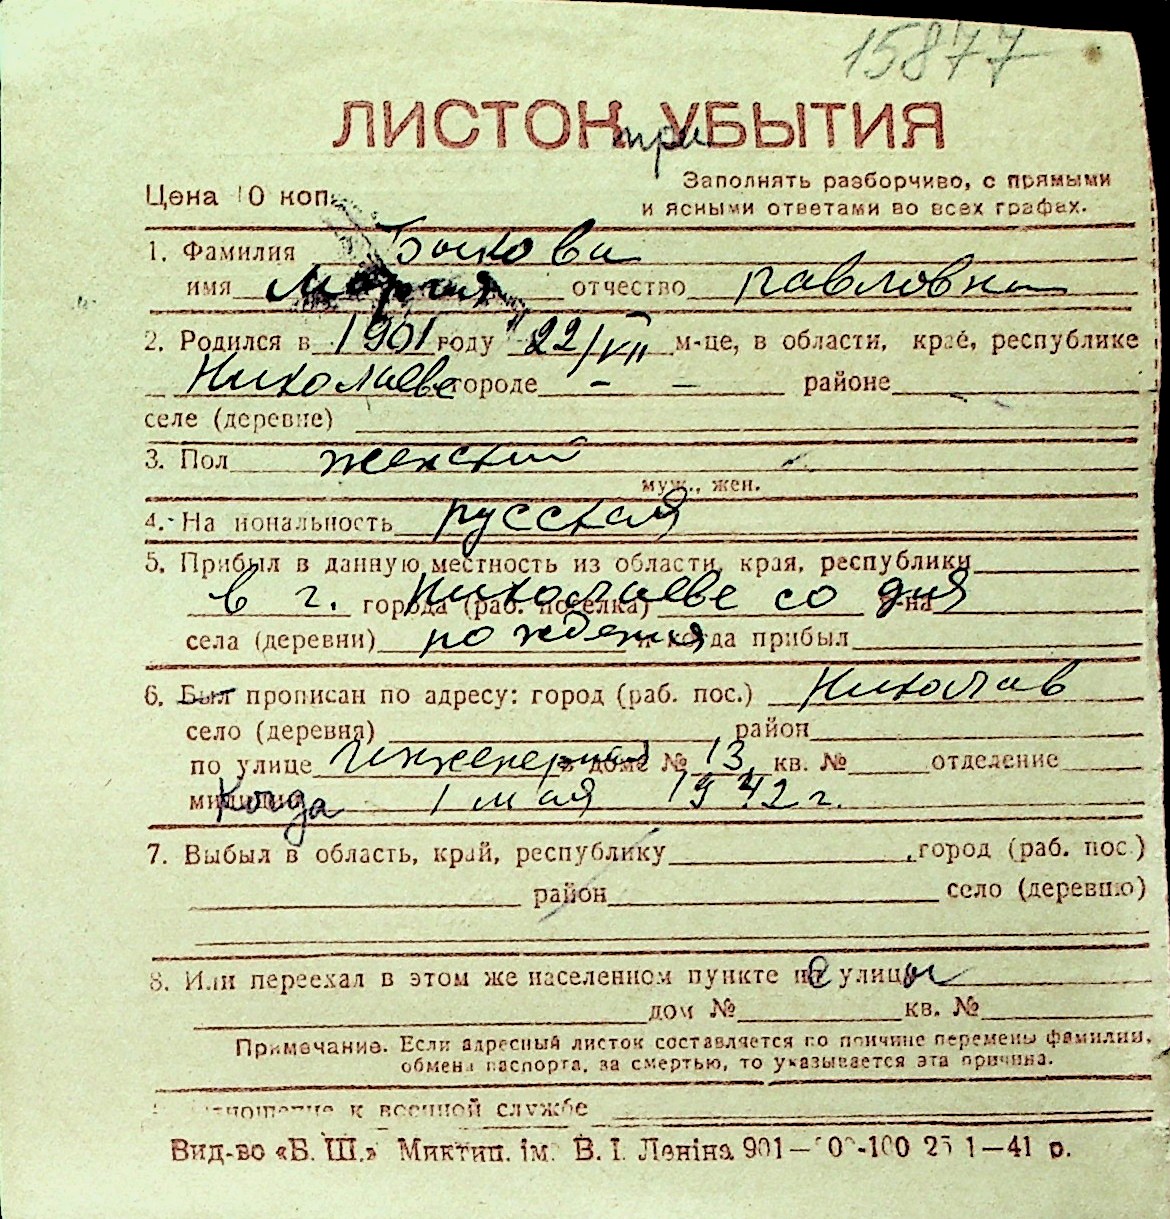 15877
ЛИСТОК при УБЫТИЯ
Цена 10 коп.
Заполнять разборчиво, с прямыми
и ясными ответами во всех графах.
1. Фамилия Быкова
имя Мария отчество Павловна
2. Родился в 1901 году "22/VII м-це, в области, крае, республике
Николаеве городе - - районе
селе (деревне)
3. Пол женский
муж., жен.
4. Национальность русская
5. Прибыл в данную местность из области, края, республики
в г. города (раб. поселка) Николаеве со дня р-на
села (деревни) рождения и когда прибыл
6. Был прописан по адресу: город (раб. пос.) Николаев
село (деревня) район
по улице Инженерная в доме № 13, кв. № отделение
милиции Когда 1 мая 1942 г.
7. Выбыл в область, край, республику город (раб. пос.)
район село (деревню)
8. Или переехал в этом же населенном пункте на с улицы
дом № кв. №
Примечание. Если адресный листок составляется по причине перемены фамилии,
обмена паспорта, за смертью, то указывается эта причина.
Отношение к военной службе
Вид-во «Б. Ш.» Миктип. ім. В. І. Леніна 901— -100 1—41 р.